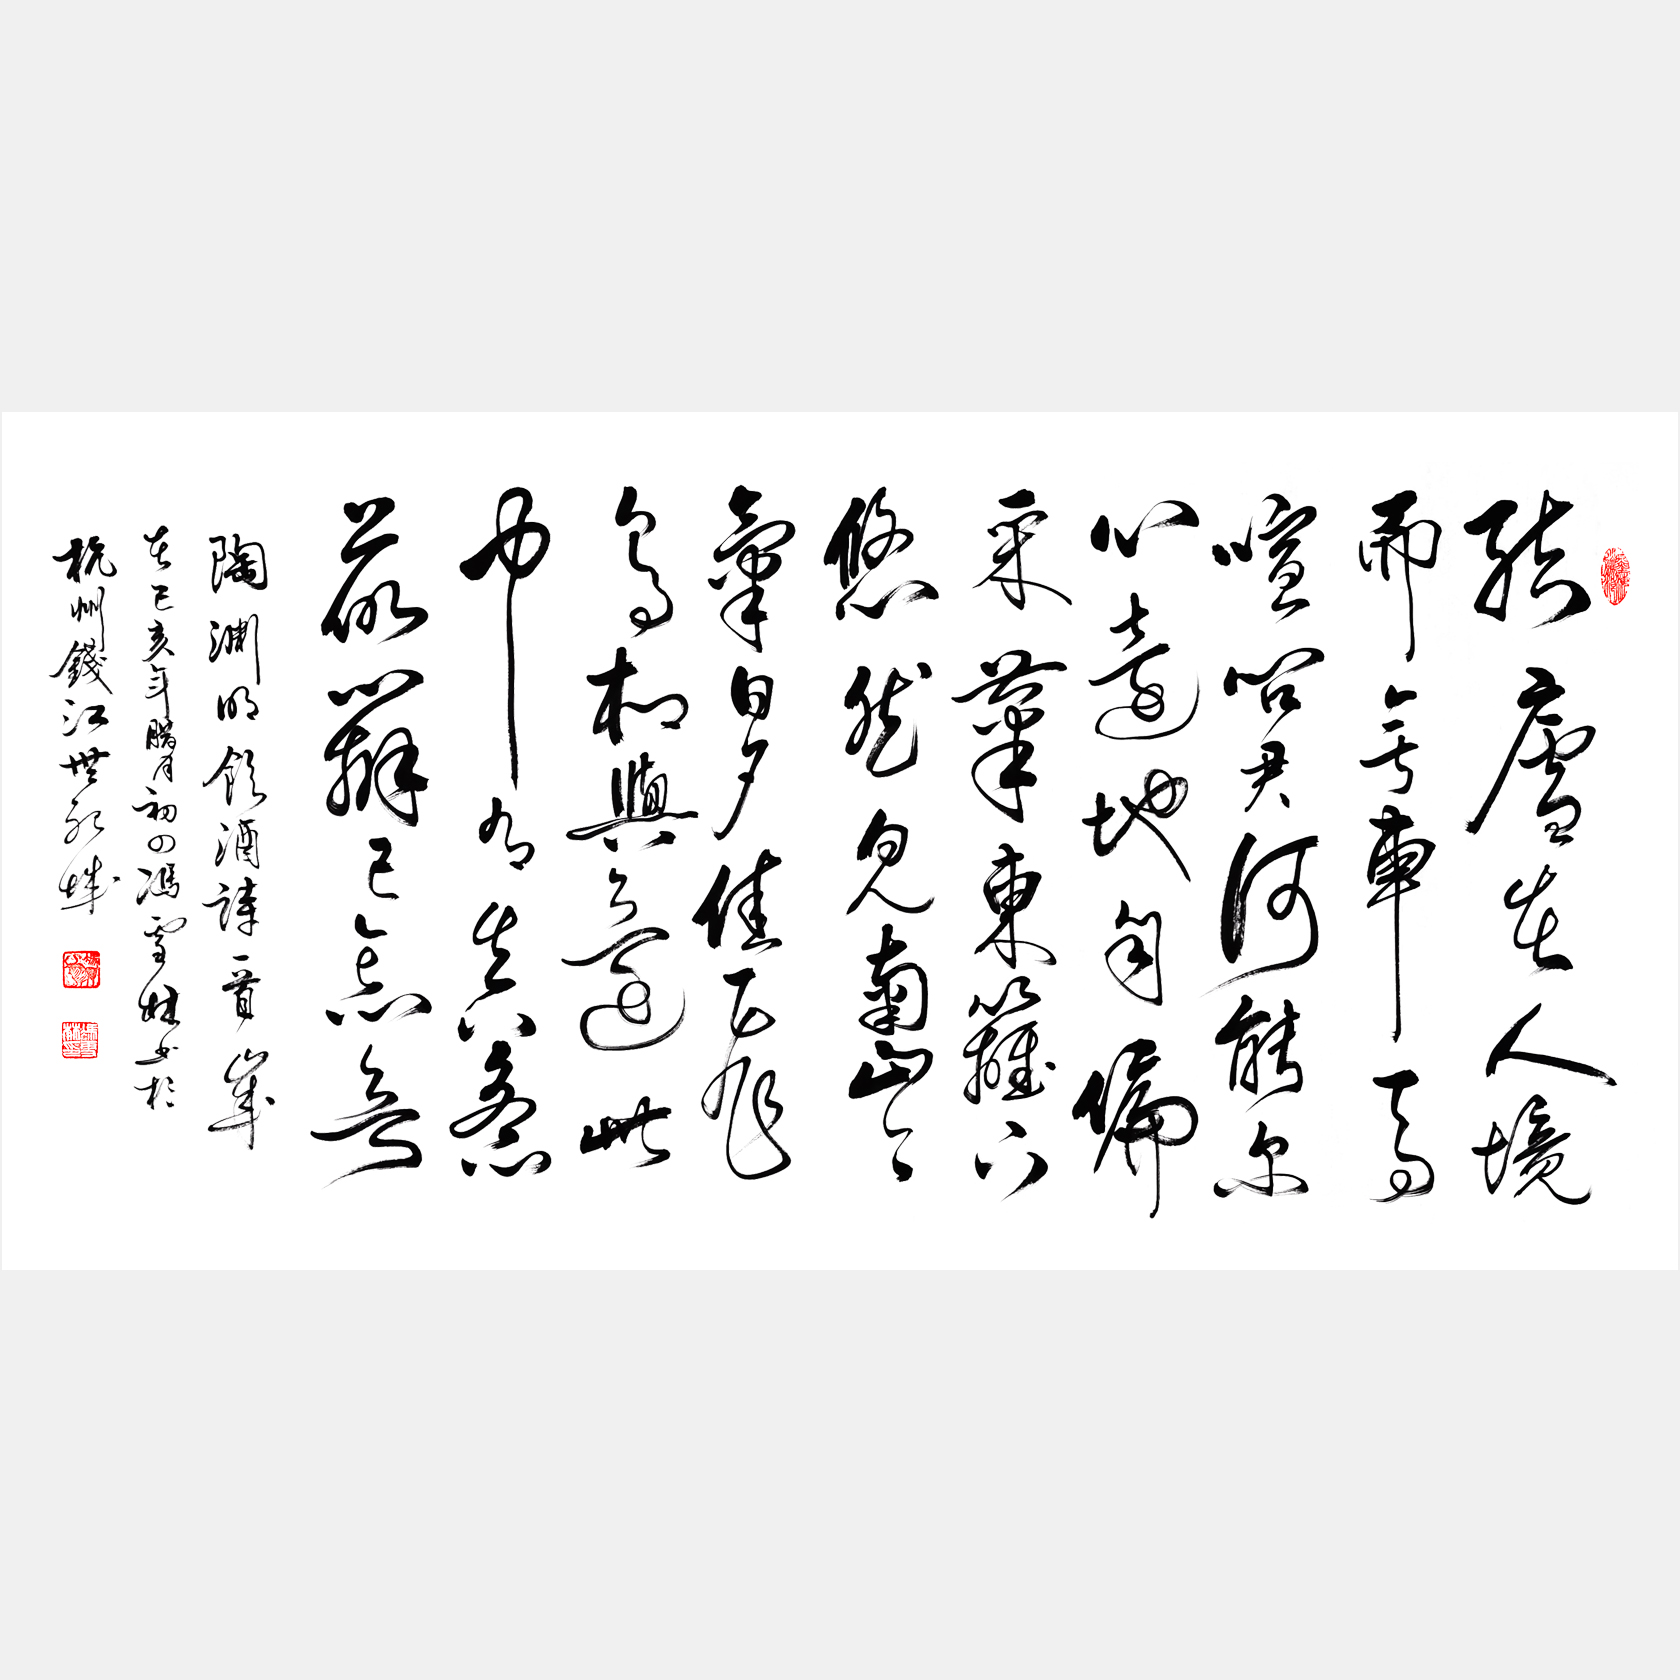 结廬在人境
而无車馬
喧問君何能尔
心遠地自偏
采菊東籬下
悠然見南山々
氣日夕佳飛
鳥相與還此
中有真意
欲辯已忘言
陶渊明飲酒詩一首歲
在己亥年臘月初四馮雪林書於
杭州錢江世紀城